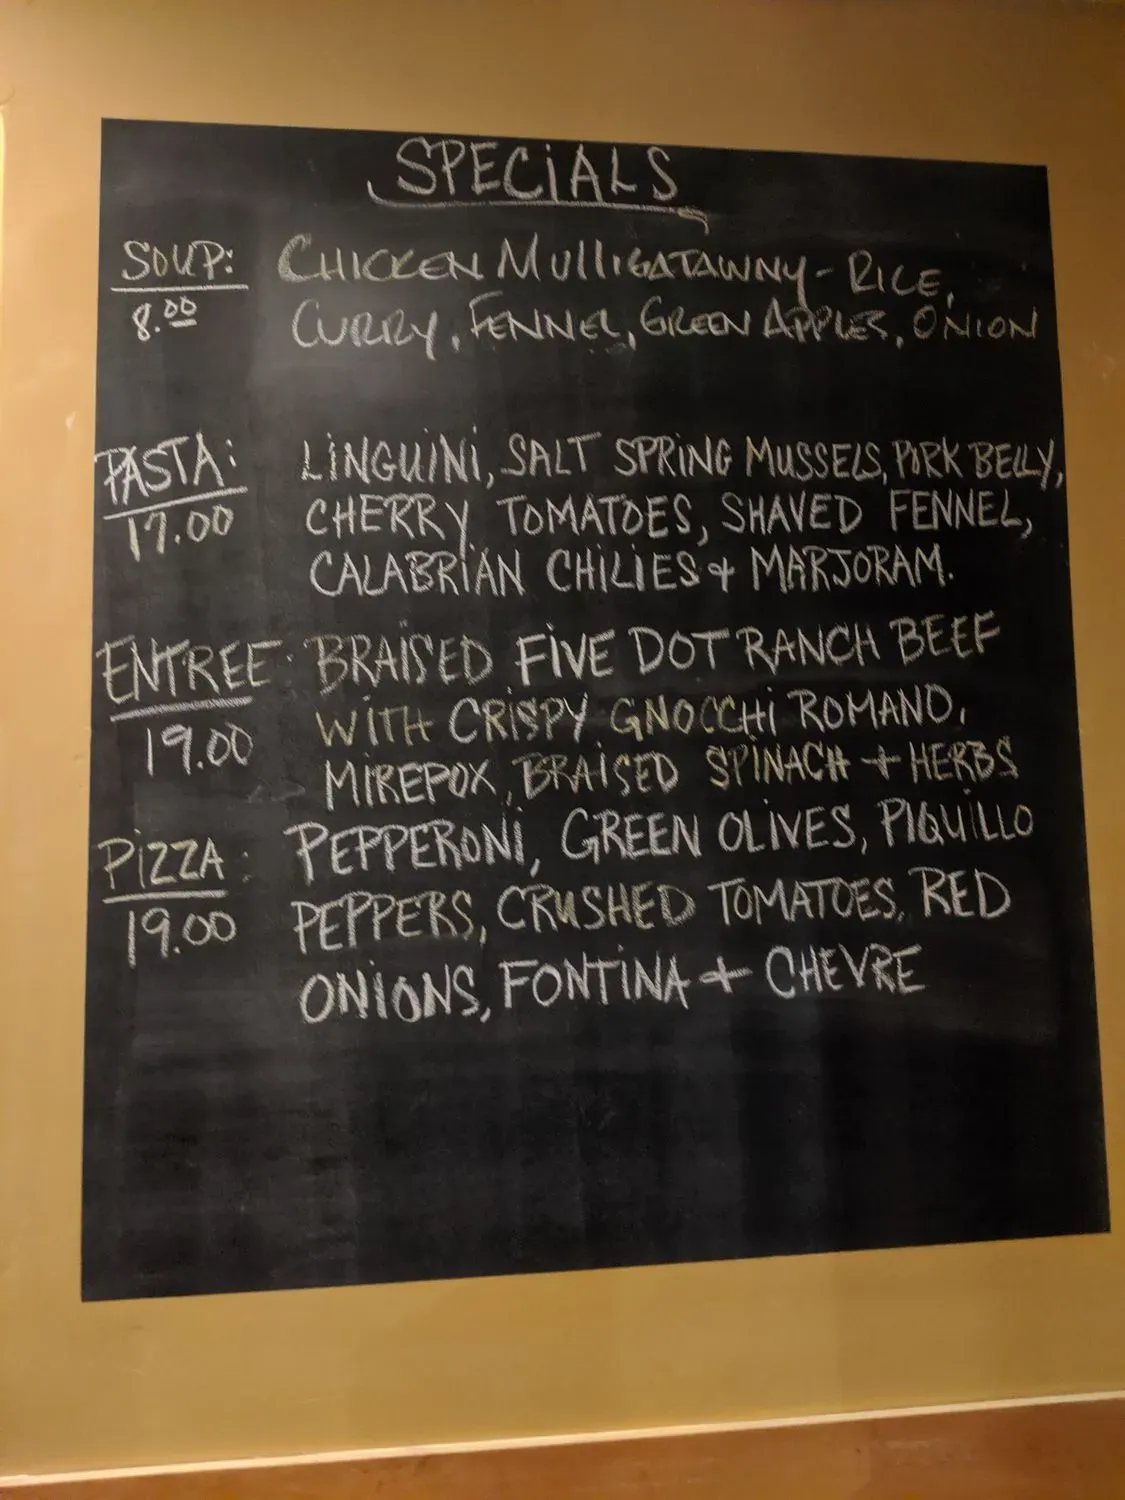 SPECiALS
SOUP: CHICKEN MULLIGATAWNY - RICE,
8.00 CURRY, FENNEL, GREEN APPLES, ONION
PASTA: LINGUINI, SALT SPRING MUSSELS, PORK BELLY,
17.00 CHERRY TOMATOES, SHAVED FENNEL,
CALABRIAN CHILIES + MARJORAM.
ENTREE: BRAISED FIVE DOT RANCH BEEF
19.00 WITH CRISPY GNOCCHI ROMANO,
MIREPOX, BRAISED SPINACH + HERBS
PIZZA: PEPPERONI, GREEN OLIVES, PIQUILLO
19.00 PEPPERS, CRUSHED TOMATOES, RED
ONIONS, FONTINA + CHEVRE